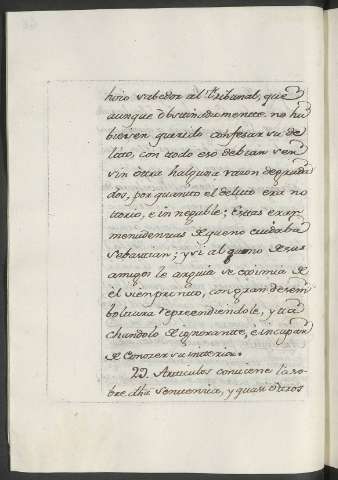 hizo sabedor al Tribunal, que
aunque obstinadamente no hu
biesen querido confesar su de
lito, con todo eso debian ser
sin otra halguna razon degrada
dos, por quanto el delito era no
torio, e in negable; Estas
menudencias de que no cuidaba
Sebastian; y si alguno de sus
amigos le arguia se eximia de
el bien pronto, con gran desem
boltura reprendiendole, y ta
chandolo de ignorante, e incapaz
de Conocer su interior.
29. Articulos contiene la so
bre dha Sentencia, y quasi otros